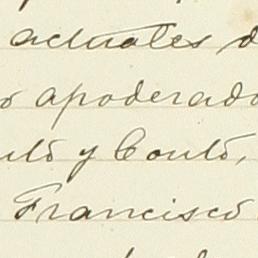 actuales d
o apoderado
ulo y Couto,
Francisco